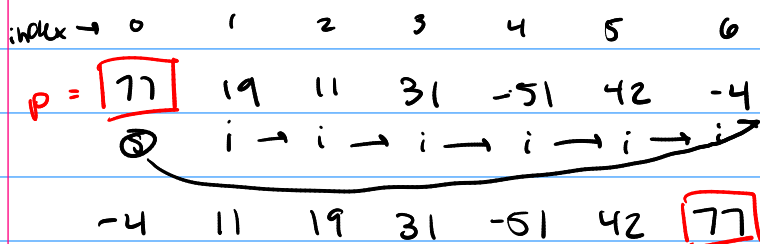 index → 0 1 2 3 4 5 6
p = 77 19 11 31 -51 42 -4
s i → i → i → i → i → i
-4 11 19 31 -51 42 77